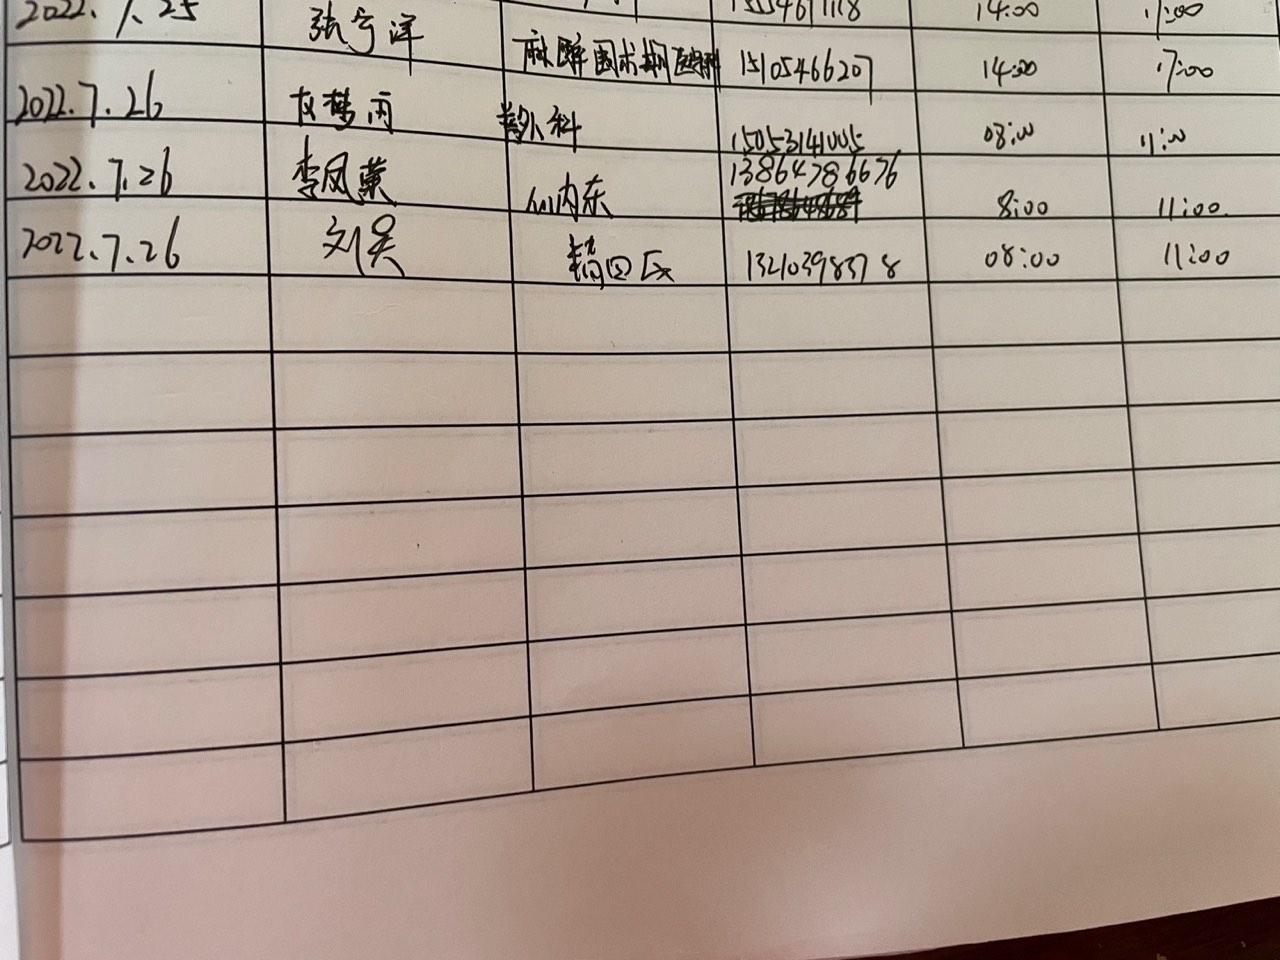 2022.7.25 张宇洋 麻醉围术期医学科 15105466207 14:00 17:00
2022.7.26 梦雨 外科 15053141005 08:00 11:00
2022.7.26 李凤 心内东 13864786676 8:00 11:00
2022.7.26 刘昊 13210398378 08:00 11:00